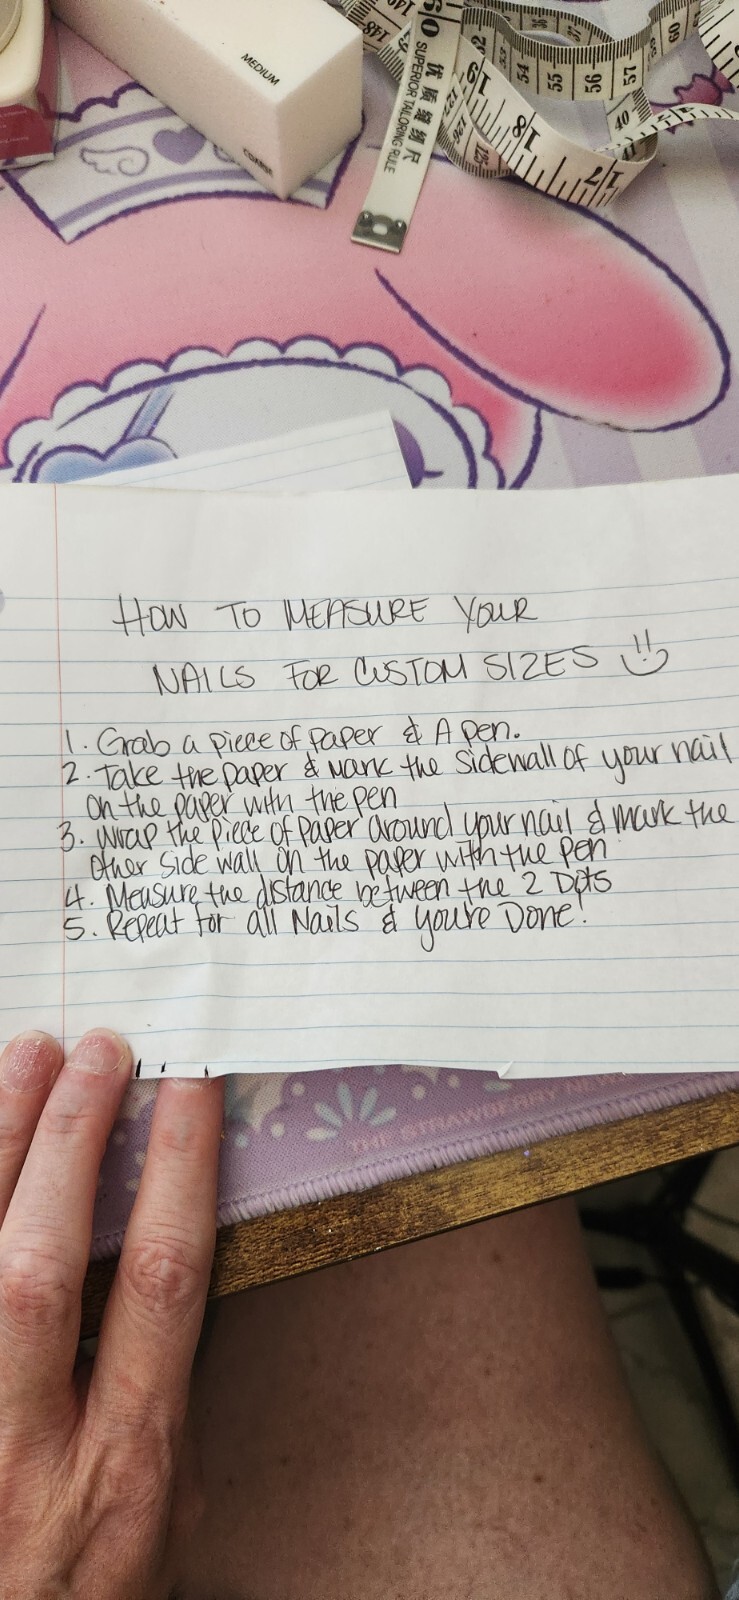 MEDIUM
COARSE
60 优质缝纫尺
SUPERIOR TAILORING RULE
HOW TO MEASURE YOUR
NAILS FOR CUSTOM SIZES
1. Grab a piece of paper & A pen.
2. Take the paper & mark the sidewall of your nail
on the paper with the pen
3. Wrap the piece of paper around your nail & mark the
other side wall on the paper with the pen
4. Measure the distance between the 2 Dots
5. Repeat for all Nails & you're Done!
THE STRAWBERRY NEWS